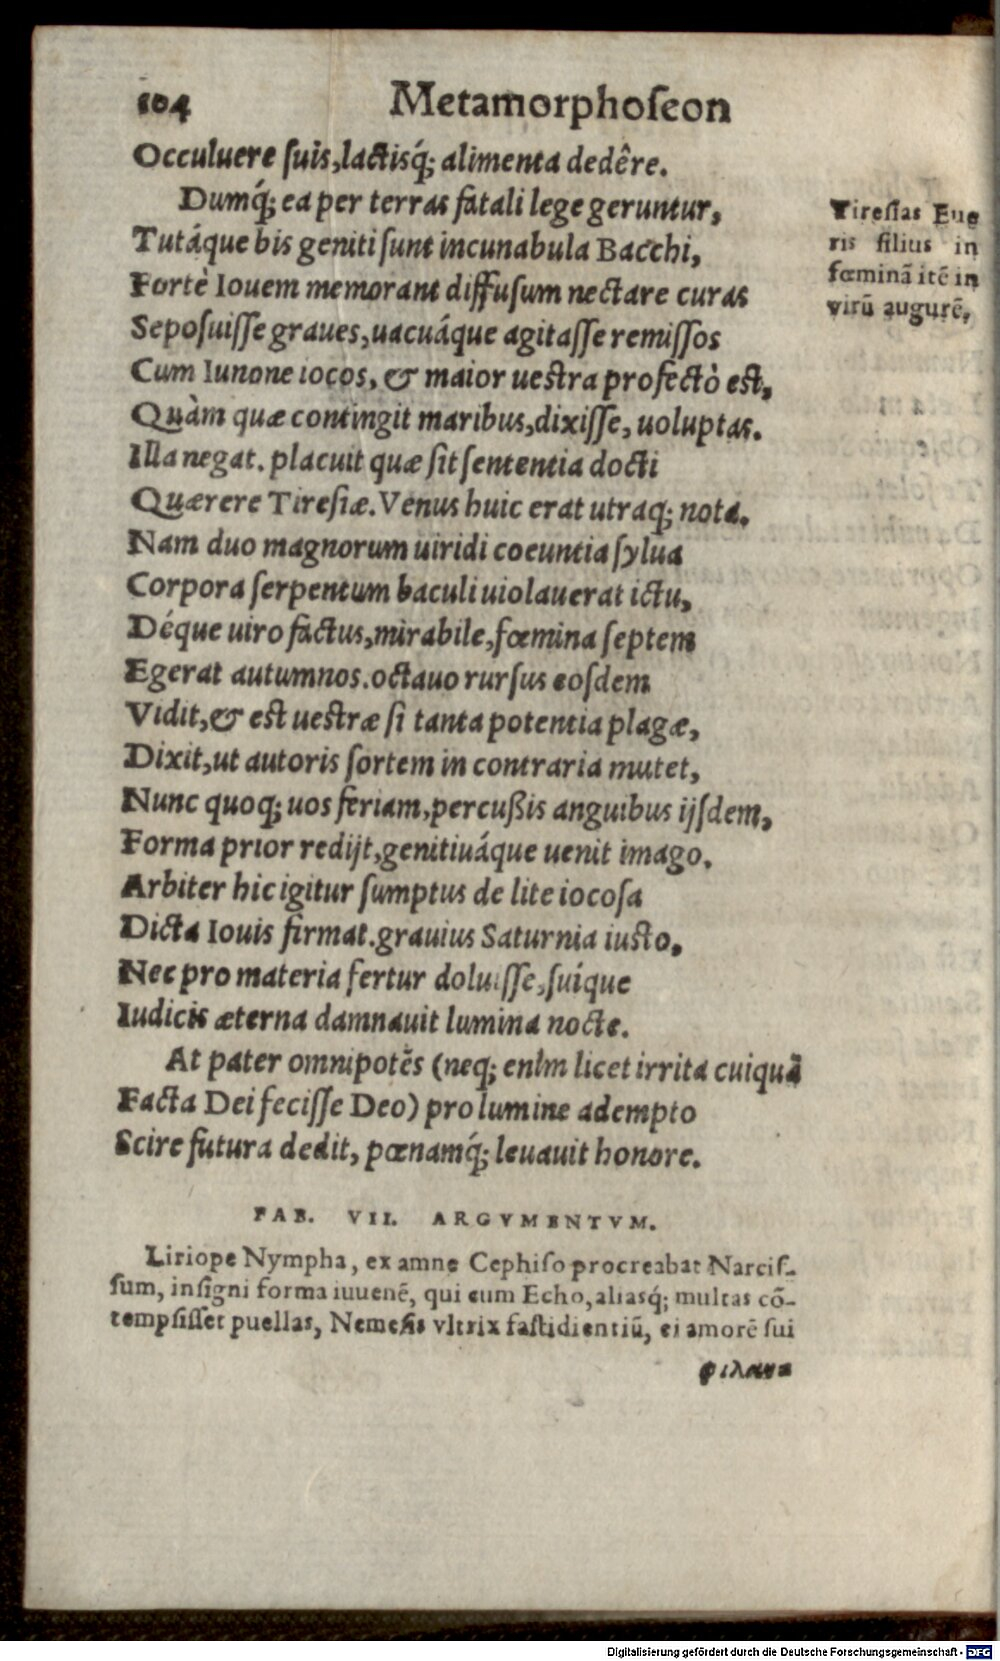 104 Metamorphoſeon
Occuluere ſuis, lactisq́; alimenta dedêre.
Dumq́; ea per terras fatali lege geruntur,
Tutáque bis geniti ſunt incunabula Bacchi,
Fortè Iouem memorant diffuſum nectare curas
Sepoſuiſſe graues, uacuáque agitaſſe remiſſos
Cum Iunone iocos, & maior ueſtra profectò eſt,
Quàm quæ contingit maribus, dixiſſe, uoluptas.
Illa negat. placuit quæ ſit ſententia docti
Quærere Tireſiæ. Venus huic erat utraq; nota.
Nam duo magnorum uiridi coeuntia ſylua
Corpora ſerpentum baculi uiolauerat ictu,
Déque uiro factus, mirabile, fœmina ſeptem
Egerat autumnos. octauo rurſus eoſdem
Vidit, & eſt ueſtræ ſi tanta potentia plagæ,
Dixit, ut autoris ſortem in contraria mutet,
Nunc quoq; uos feriam, percußis anguibus ijſdem,
Forma prior redijt, genitiuáque uenit imago.
Arbiter hic igitur ſumptus de lite iocoſa
Dicta Iouis firmat. grauius Saturnia iuſto,
Nec pro materia fertur doluiſſe, ſuíque
Iudicis æterna damnauit lumina nocte.
At pater omnipotẽs (neq; enim licet irrita cuiquã
Facta Dei feciſſe Deo) pro lumine adempto
Scire futura dedit, pœnamq́; leuauit honore.
Tireſias Eue
ris filius in
fœminã itẽ in
virũ augurẽ.
FAB. VII. ARGVMENTVM.
Liriope Nympha, ex amne Cephiſo procreabat Narciſ-
ſum, inſigni forma iuuenẽ, qui cum Echo, aliasq́; multas cõ-
tempſiſſet puellas, Nemeſis vltrix faſtidientiũ, ei amorẽ ſui
φιλαυ
Digitalisierung gefördert durch die Deutsche Forschungsgemeinschaft - DFG